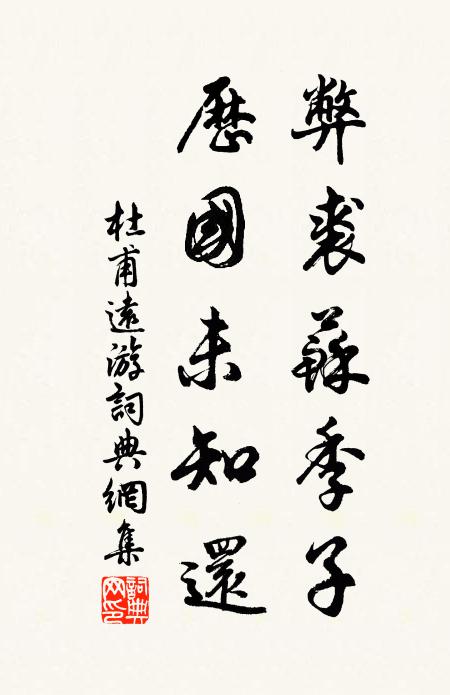 弊裘蘇季子
歷國未知還
杜甫遠游詞典網集
詞典网印